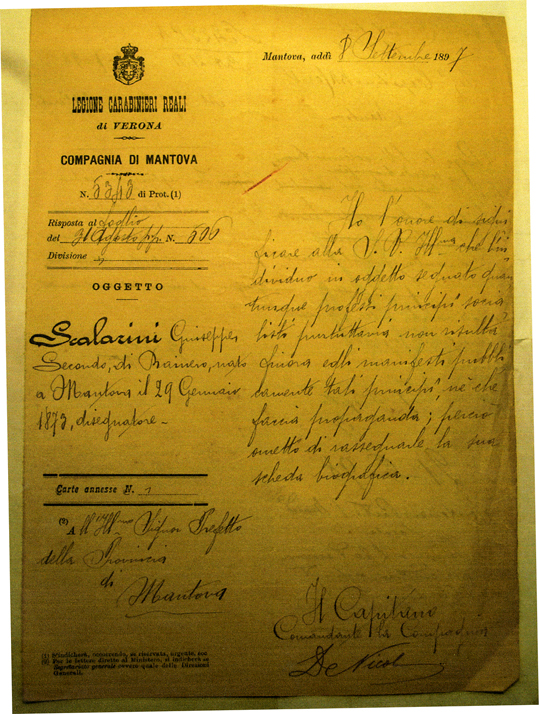 Mantova, addì 8 Settembre 1897
LEGIONE CARABINIERI REALI
di VERONA
COMPAGNIA DI MANTOVA
N. 53/13 di Prot. (1)
Risposta al foglio
del 31 Agosto pp. N. 506
Divisione
OGGETTO
Scalarini Giuseppe,
Secondo, di Rainero, nato
a Mantova il 29 Gennaio
1873, disegnatore -
Carte annesse N. 1
(2) A ll'Ill.mo Signor Prefetto
della Provincia
di
Mantova
Ho l'onore di
ficare alla S. V. Ill.ma che l'in
dividuo in oggetto segnato quan
tunque professi principi socia
listi purtuttavia non risulta
finora egli manifesti pubbli
camente tali principi, nè che
faccia propaganda; perciò
ometto di rassegnare la sua
scheda biografica.
Il Capitano
Comandante la Compagnia
De Nicol
(1) S'indicherà, occorrendo, se riservata, urgente, ecc.
(2) Per le lettere dirette al Ministero, si indicherà se
Segretariato generale ovvero quale delle Direzioni
Generali.